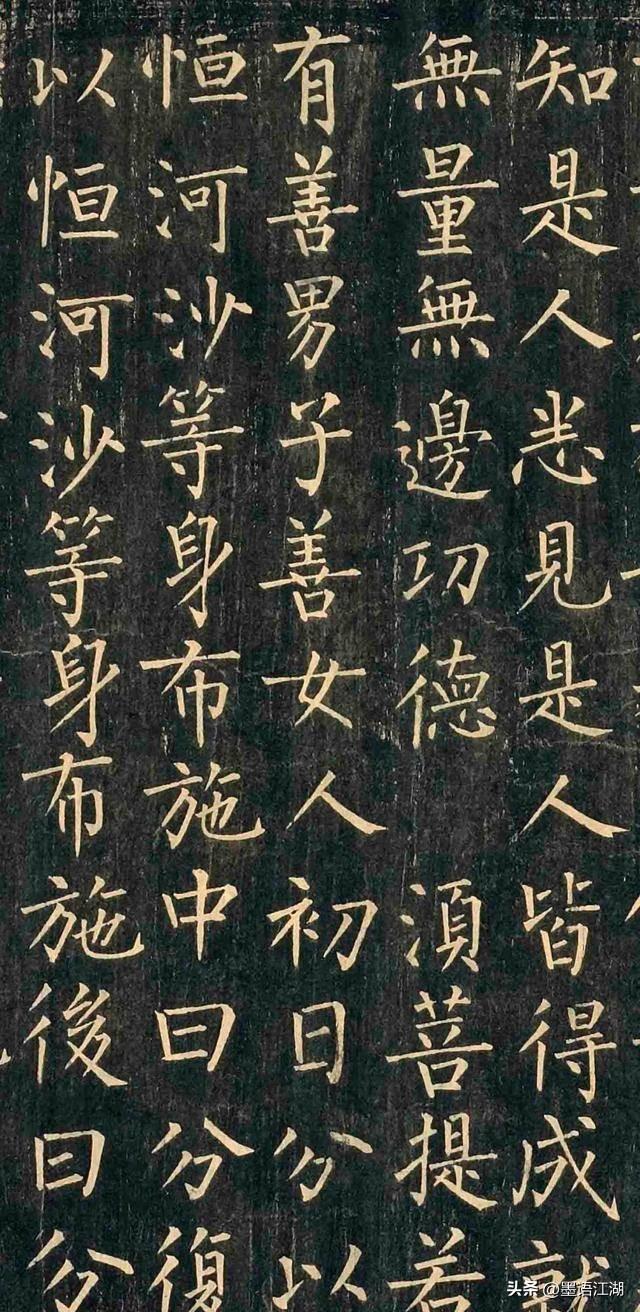 知是人悉見是人皆得成就
無量無邊功德 湏菩提若
有善男子善女人初日分以
恒河沙等身布施中日分復
以恒河沙等身布施後日分
头条 @墨语江湖